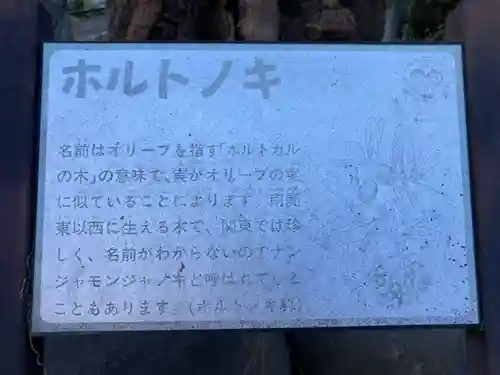 ホルトノキ
名前はオリーブを指す「ホルトガル
の木」の意味で、実がオリーブの実
に似ていることによります。
東以西に生える木で、関東では珍
しく、名前がわからないのでナン
ジャモンジャノキと呼ばれている
こともあります。(ホルトノキ科)